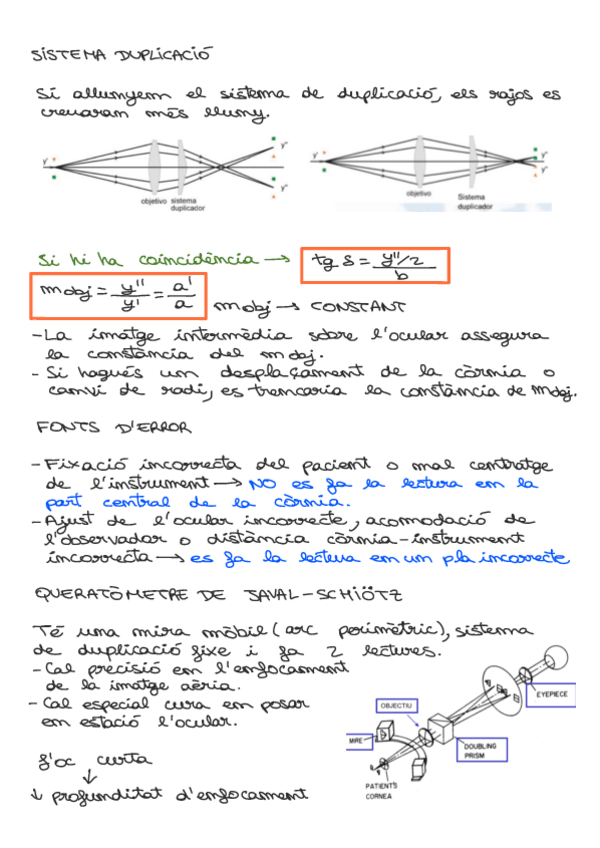 SISTEMA DUPLICACIÓ
Si allunyem el sistema de duplicació, els rajos es
creuaran més lluny.
y' y" y"
objetivo sistema
duplicador
y' y" y"
objetivo Sistema
duplicador
Si hi ha coincidència → tg δ = y"/2 / b
m obj = y" / y' = a' / a
m obj → CONSTANT
- La imatge intermèdia sobre l'ocular assegura
la constància del m obj.
- Si hagués un desplaçament de la còrnia o
canvi de radi, es trencaria la constància de m obj.
FONTS D'ERROR
- Fixació incorrecta del pacient o mal centratge
de l'instrument → NO es fa la lectura en la
part central de la còrnia.
- Ajust de l'ocular incorrecte, acomodació de
l'observador o distància còrnia-instrument
incorrecta → es fa la lectura en un pla incorrecte
QUERATÒMETRE DE JAVAL-SCHIÖTZ
Té una mira mòbil (arc perimètric), sistema
de duplicació fixe i fa 2 lectures.
- Cal precisió en l'enfocament
de la imatge aèria.
- Cal especial cura en posar
en estació l'ocular.
EYEPIECE
OBJECTIU
MIRE
DOUBLING
PRISM
PATIENT'S
CORNEA
f'oc curta
↓
↓ profunditat d'enfocament